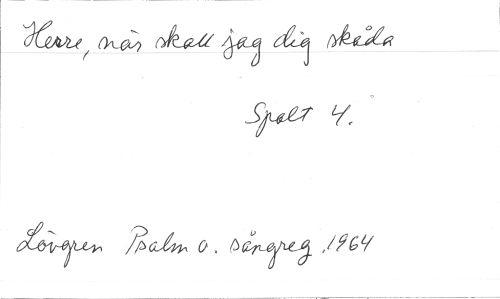 Herre, när skall jag dig skåda
Spalt 4.
Lövgren Psalm o. sångreg. 1964